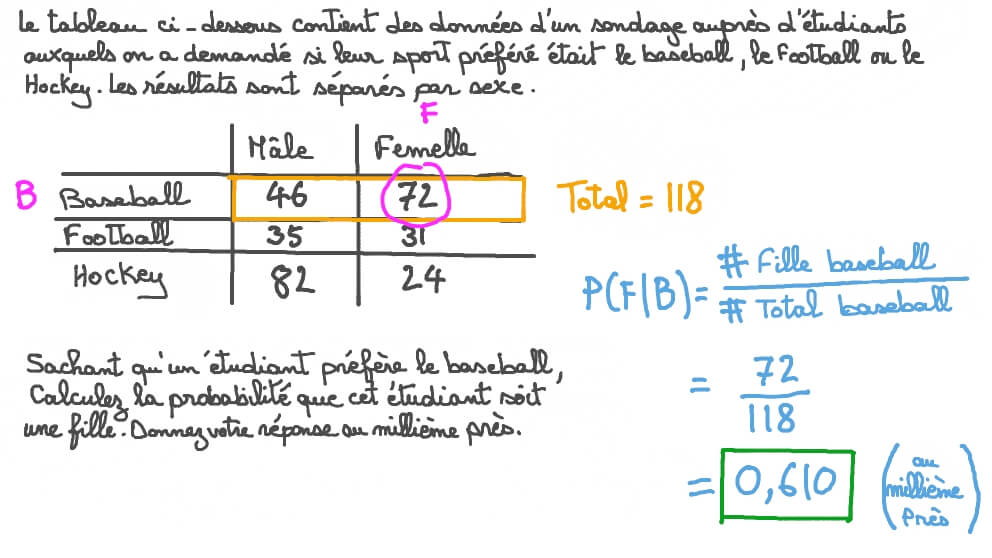 Le tableau ci-dessous contient des données d'un sondage auprès d'étudiants
auxquels on a demandé si leur sport préféré était le baseball, le Football ou le
Hockey. Les résultats sont séparés par sexe.
F
Mâle Femelle
B Baseball 46 72 Total = 118
Football 35 31
Hockey 82 24
P(F|B) = # Fille baseball / # Total baseball
Sachant qu'un étudiant préfère le baseball,
Calculez la probabilité que cet étudiant soit
une fille. Donnez votre réponse au millième près.
= 72 / 118
= 0,610 (au millième près)